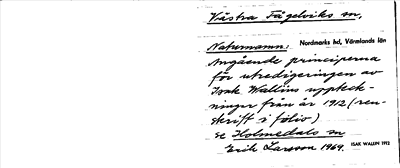 Västra Fågelviks sn,
Nordmarks hd, Värmlands län
Naturnamn:
Angående principerna
för utredigeringen av
Isak Wallins uppteck-
ningar från år 1912 (ren-
skrift i folio)
se Holmedals sn
Erik Larsson 1969.
ISAK WALLIN 1912